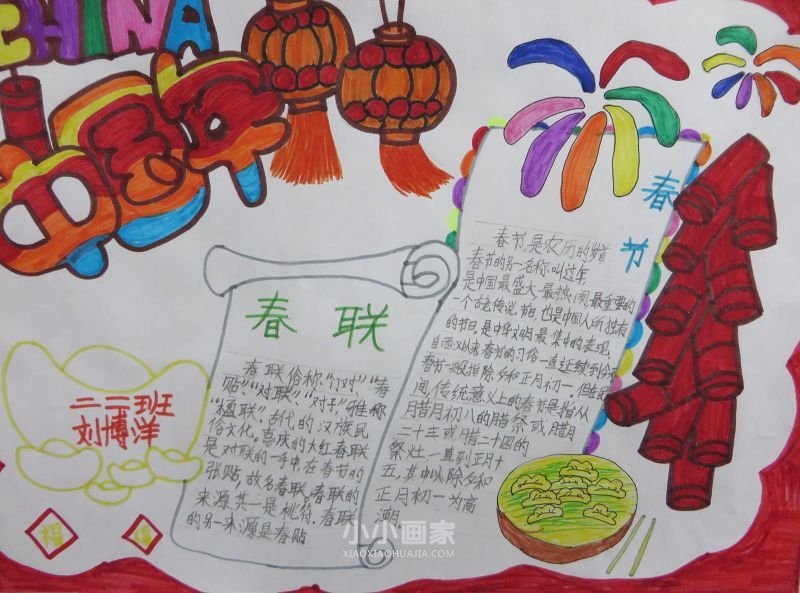 CHINA
中国年
春节
春节,是农历的岁首
春节的另一名称,叫过年,
是中国最盛大、最热闹、最重要的
一个古老传说节日,也是中国人所独有
的节日,是中华文明最集中的表现,
自西汉以来,春节的习俗一直延续到今天,
春节一般指除夕和正月初一,但在民
间,传统意义上的春节是指从
腊月初八的腊祭或腊月
二十三或腊二十四的
祭灶,一直到正月十
五,其中以除夕和
正月初一为高
潮
春联
春联俗称“门对”“春
贴”、“对联”、“对子”,雅称
“楹联”,古代的汉族民
俗文化。喜庆的大红春联
是对联的一种,在春节的
张贴,故名春联,春联的
来源其二是桃符,春联
的另一来源是春贴
二二班
刘博洋
小小画家
XIAOXIAOHUAJIA.COM